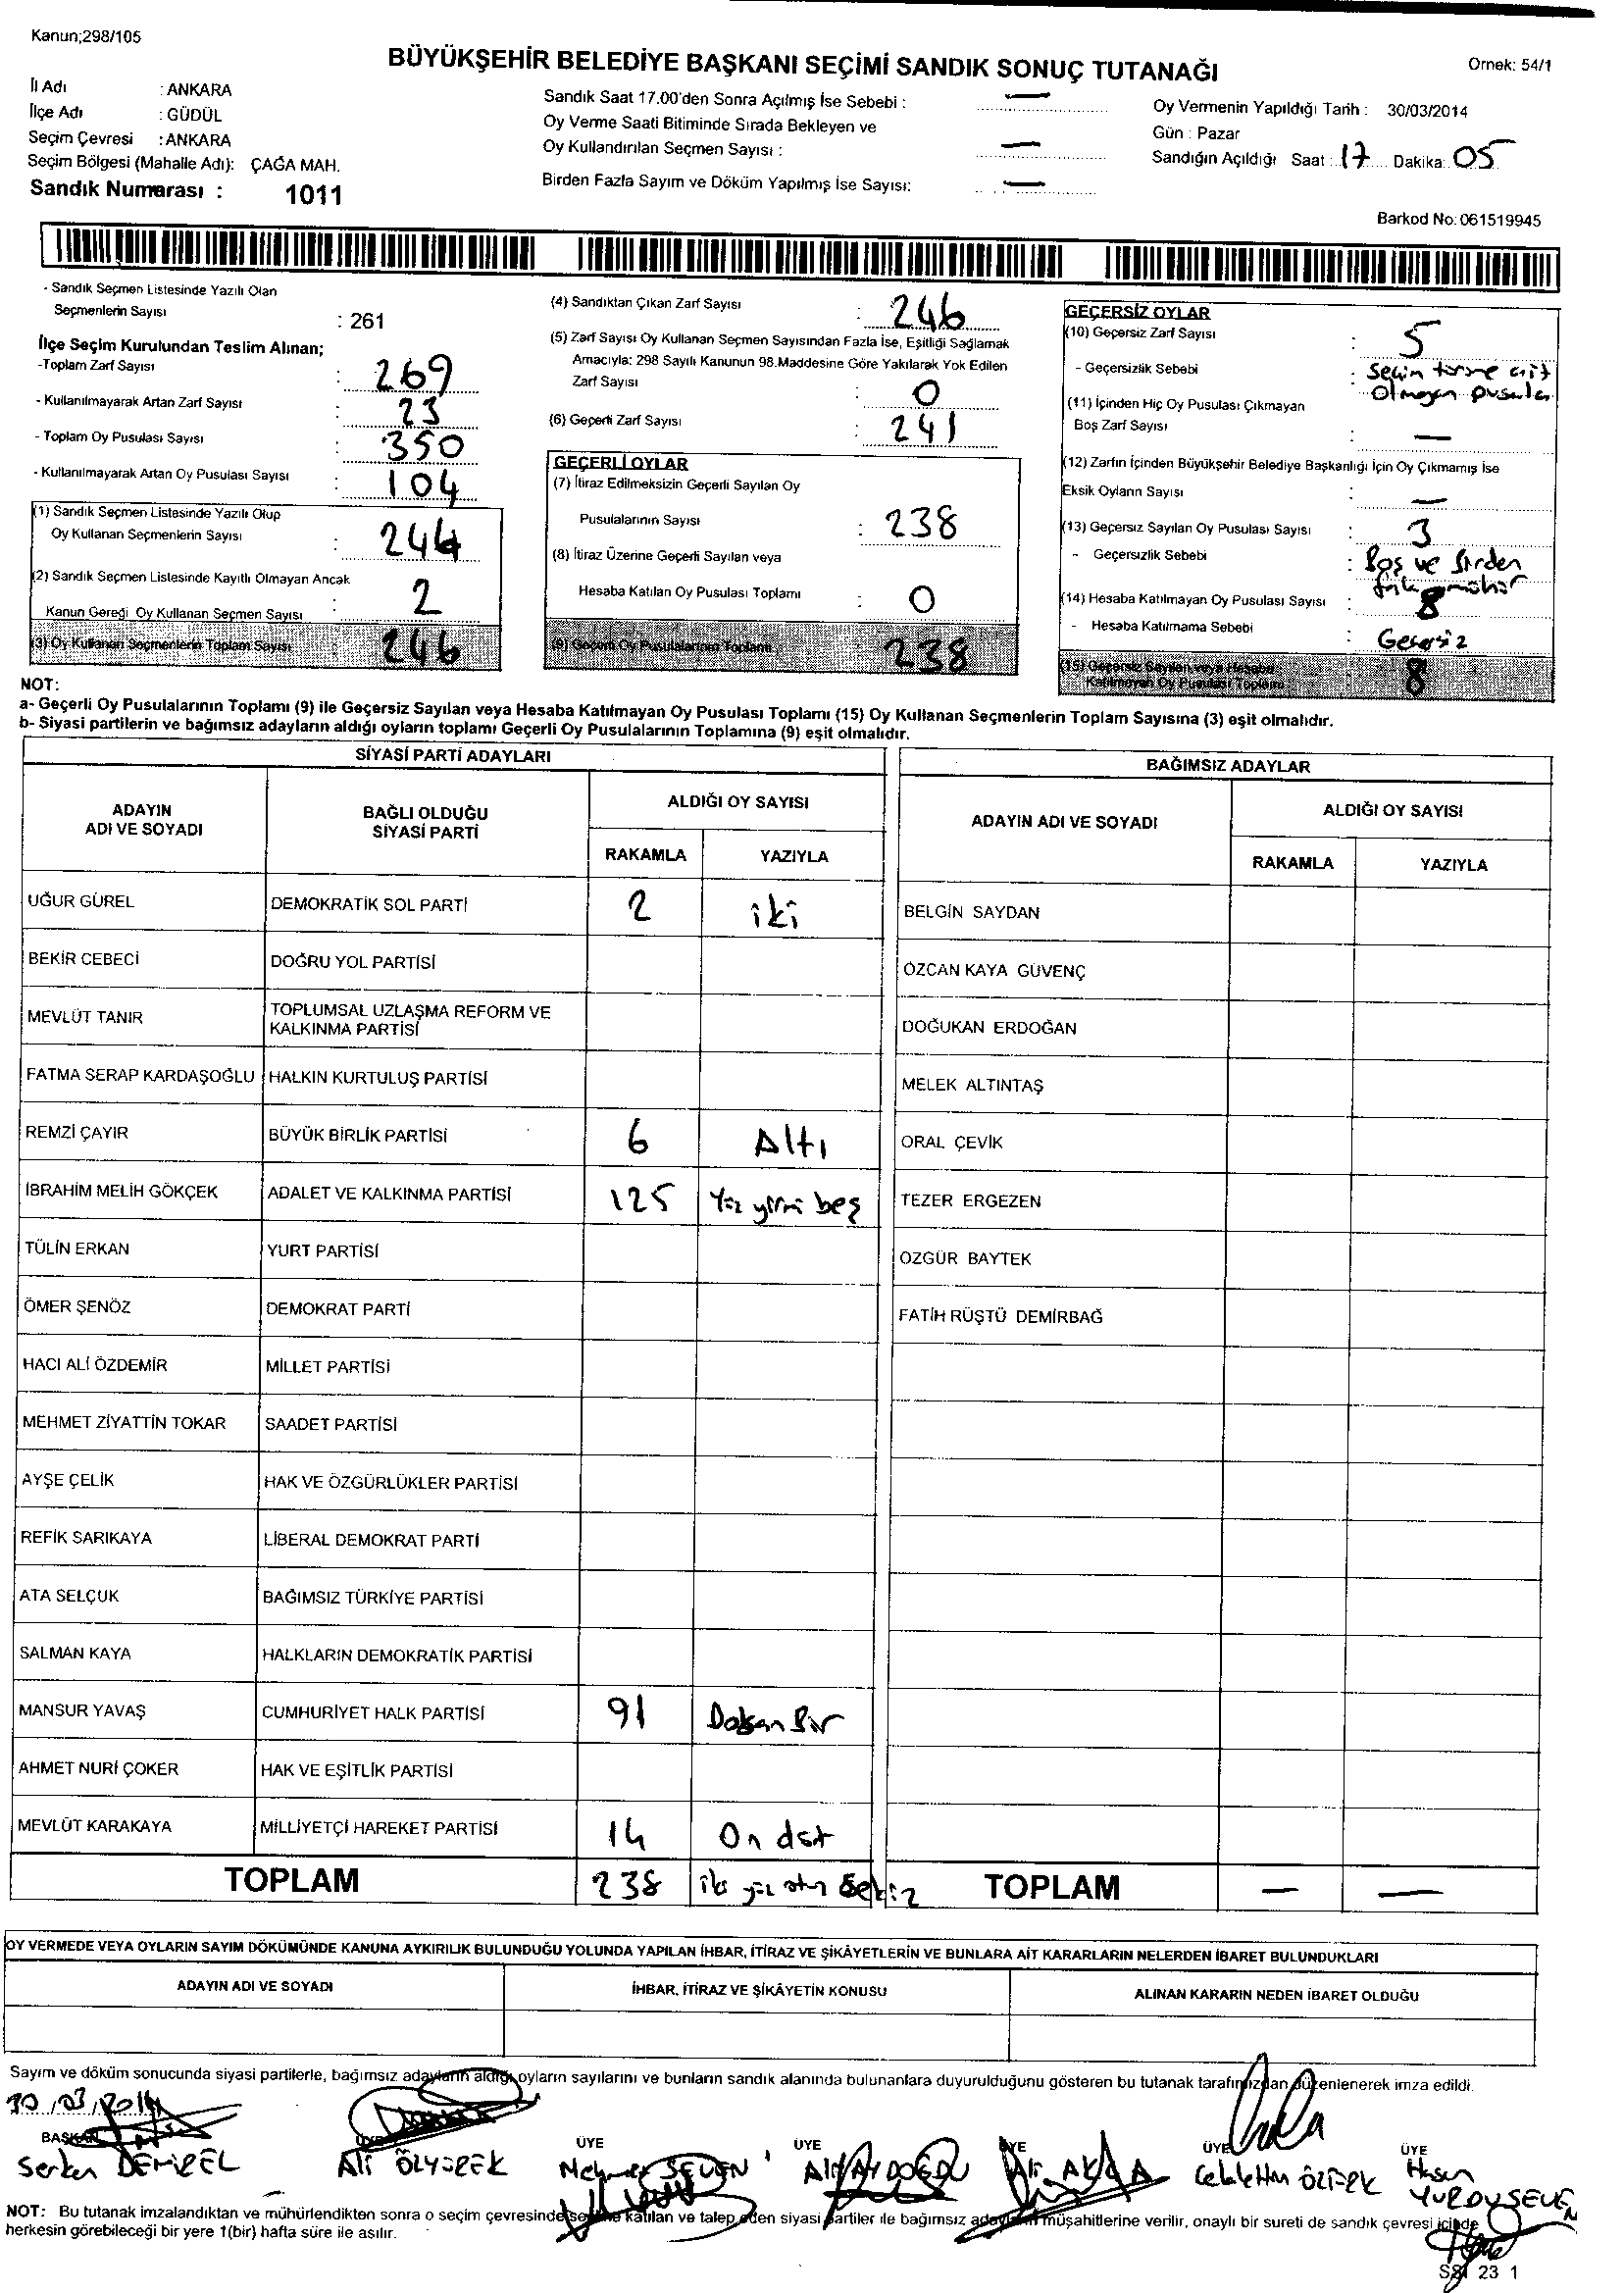 Kanun;298/105
BÜYÜKŞEHİR BELEDİYE BAŞKANI SEÇİMİ SANDIK SONUÇ TUTANAĞI
Ornek: 54/1
İl Adı : ANKARA
İlçe Adı : GÜDÜL
Seçim Çevresi : ANKARA
Seçim Bölgesi (Mahalle Adı): ÇAĞA MAH.
Sandık Numarası : 1011
Sandık Saat 17.00'den Sonra Açılmış İse Sebebi : —
Oy Verme Saati Bitiminde Sırada Bekleyen ve
Oy Kullandırılan Seçmen Sayısı : —
Birden Fazla Sayım ve Döküm Yapılmış İse Sayısı: —
Oy Vermenin Yapıldığı Tarih : 30/03/2014
Gün : Pazar
Sandığın Açıldığı Saat : 17 Dakika: 05
Barkod No: 061519945
- Sandık Seçmen Listesinde Yazılı Olan
Seçmenlerin Sayısı : 261
İlçe Seçim Kurulundan Teslim Alınan;
-Toplam Zarf Sayısı : 269
- Kullanılmayarak Artan Zarf Sayısı : 23
- Toplam Oy Pusulası Sayısı : 350
- Kullanılmayarak Artan Oy Pusulası Sayısı : 104
(1) Sandık Seçmen Listesinde Yazılı Olup
Oy Kullanan Seçmenlerin Sayısı : 244
(2) Sandık Seçmen Listesinde Kayıtlı Olmayan Ancak
Kanun Gereği Oy Kullanan Seçmen Sayısı : 2
(3) Oy Kullanan Seçmenlerin Toplam Sayısı : 246
(4) Sandıktan Çıkan Zarf Sayısı : 246
(5) Zarf Sayısı Oy Kullanan Seçmen Sayısından Fazla İse, Eşitliği Sağlamak
Amacıyla: 298 Sayılı Kanunun 98.Maddesine Göre Yakılarak Yok Edilen
Zarf Sayısı : 0
(6) Geçerli Zarf Sayısı : 241
GEÇERLİ OYLAR
(7) İtiraz Edilmeksizin Geçerli Sayılan Oy
Pusulalarının Sayısı : 238
(8) İtiraz Üzerine Geçerli Sayılan veya
Hesaba Katılan Oy Pusulası Toplamı : 0
(9) Geçerli Oy Pusulalarının Toplamı : 238
GEÇERSİZ OYLAR
(10) Geçersiz Zarf Sayısı : 5
- Geçersizlik Sebebi : Seçim türüne ait
Olmayan pusula
(11) İçinden Hiç Oy Pusulası Çıkmayan
Boş Zarf Sayısı : —
(12) Zarfın İçinden Büyükşehir Belediye Başkanlığı İçin Oy Çıkmamış İse
Eksik Oyların Sayısı : —
(13) Geçersiz Sayılan Oy Pusulası Sayısı : 3
- Geçersizlik Sebebi : Boş ve Birden
mühür
(14) Hesaba Katılmayan Oy Pusulası Sayısı : 8
- Hesaba Katılmama Sebebi : Geçersiz
(15) Geçersiz Sayılan veya Hesaba
Katılmayan Oy Pusulası Toplamı : 8
NOT:
a- Geçerli Oy Pusulalarının Toplamı (9) ile Geçersiz Sayılan veya Hesaba Katılmayan Oy Pusulası Toplamı (15) Oy Kullanan Seçmenlerin Toplam Sayısına (3) eşit olmalıdır.
b- Siyasi partilerin ve bağımsız adayların aldığı oyların toplamı Geçerli Oy Pusulalarının Toplamına (9) eşit olmalıdır.
SİYASİ PARTİ ADAYLARI
ADAYIN ADI VE SOYADI
BAĞLI OLDUĞU SİYASİ PARTİ
ALDIĞI OY SAYISI
RAKAMLA YAZIYLA
UĞUR GÜREL DEMOKRATİK SOL PARTİ 2 iki
BEKİR CEBECİ DOĞRU YOL PARTİSİ
MEVLÜT TANIR TOPLUMSAL UZLAŞMA REFORM VE KALKINMA PARTİSİ
FATMA SERAP KARDAŞOĞLU HALKIN KURTULUŞ PARTİSİ
REMZİ ÇAYIR BÜYÜK BİRLİK PARTİSİ 6 Altı
İBRAHİM MELİH GÖKÇEK ADALET VE KALKINMA PARTİSİ 125 Yüz yirmi beş
TÜLİN ERKAN YURT PARTİSİ
ÖMER ŞENÖZ DEMOKRAT PARTİ
HACI ALİ ÖZDEMİR MİLLET PARTİSİ
MEHMET ZİYATTİN TOKAR SAADET PARTİSİ
AYŞE ÇELİK HAK VE ÖZGÜRLÜKLER PARTİSİ
REFİK SARIKAYA LİBERAL DEMOKRAT PARTİ
ATA SELÇUK BAĞIMSIZ TÜRKİYE PARTİSİ
SALMAN KAYA HALKLARIN DEMOKRATİK PARTİSİ
MANSUR YAVAŞ CUMHURİYET HALK PARTİSİ 91 Doksan Bir
AHMET NURİ ÇOKER HAK VE EŞİTLİK PARTİSİ
MEVLÜT KARAKAYA MİLLİYETÇİ HAREKET PARTİSİ 14 On dört
TOPLAM 238 iki yüz otuz Sekiz
BAĞIMSIZ ADAYLAR
ADAYIN ADI VE SOYADI
ALDIĞI OY SAYISI
RAKAMLA YAZIYLA
BELGİN SAYDAN
ÖZCAN KAYA GÜVENÇ
DOĞUKAN ERDOĞAN
MELEK ALTINTAŞ
ORAL ÇEVİK
TEZER ERGEZEN
ÖZGÜR BAYTEK
FATİH RÜŞTÜ DEMİRBAĞ
TOPLAM — —
OY VERMEDE VEYA OYLARIN SAYIM DÖKÜMÜNDE KANUNA AYKIRILIK BULUNDUĞU YOLUNDA YAPILAN İHBAR, İTİRAZ VE ŞİKÂYETLERİN VE BUNLARA AİT KARARLARIN NELERDEN İBARET BULUNDUKLARI
ADAYIN ADI VE SOYADI İHBAR, İTİRAZ VE ŞİKÂYETİN KONUSU ALINAN KARARIN NEDEN İBARET OLDUĞU
Sayım ve döküm sonucunda siyasi partilerle, bağımsız adayların aldığı oyların sayılarını ve bunların sandık alanında bulunanlara duyurulduğunu gösteren bu tutanak tarafımızdan düzenlenerek imza edildi.
30/03/2014
BAŞKAN ÜYE ÜYE ÜYE ÜYE ÜYE ÜYE
Serkan DEMİREL Ali ÖZYÜREK Mehmet SEVEN Ali AYDOĞDU Ali AKÇA Celalettin ÖZTÜRK Hasan
YURDUSEVEN
NOT: Bu tutanak imzalandıktan ve mühürlendikten sonra o seçim çevresinde seçime katılan ve talep eden siyasi partiler ile bağımsız adayların müşahitlerine verilir, onaylı bir sureti de sandık çevresi içinde
herkesin görebileceği bir yere 1(bir) hafta süre ile asılır.
23 1